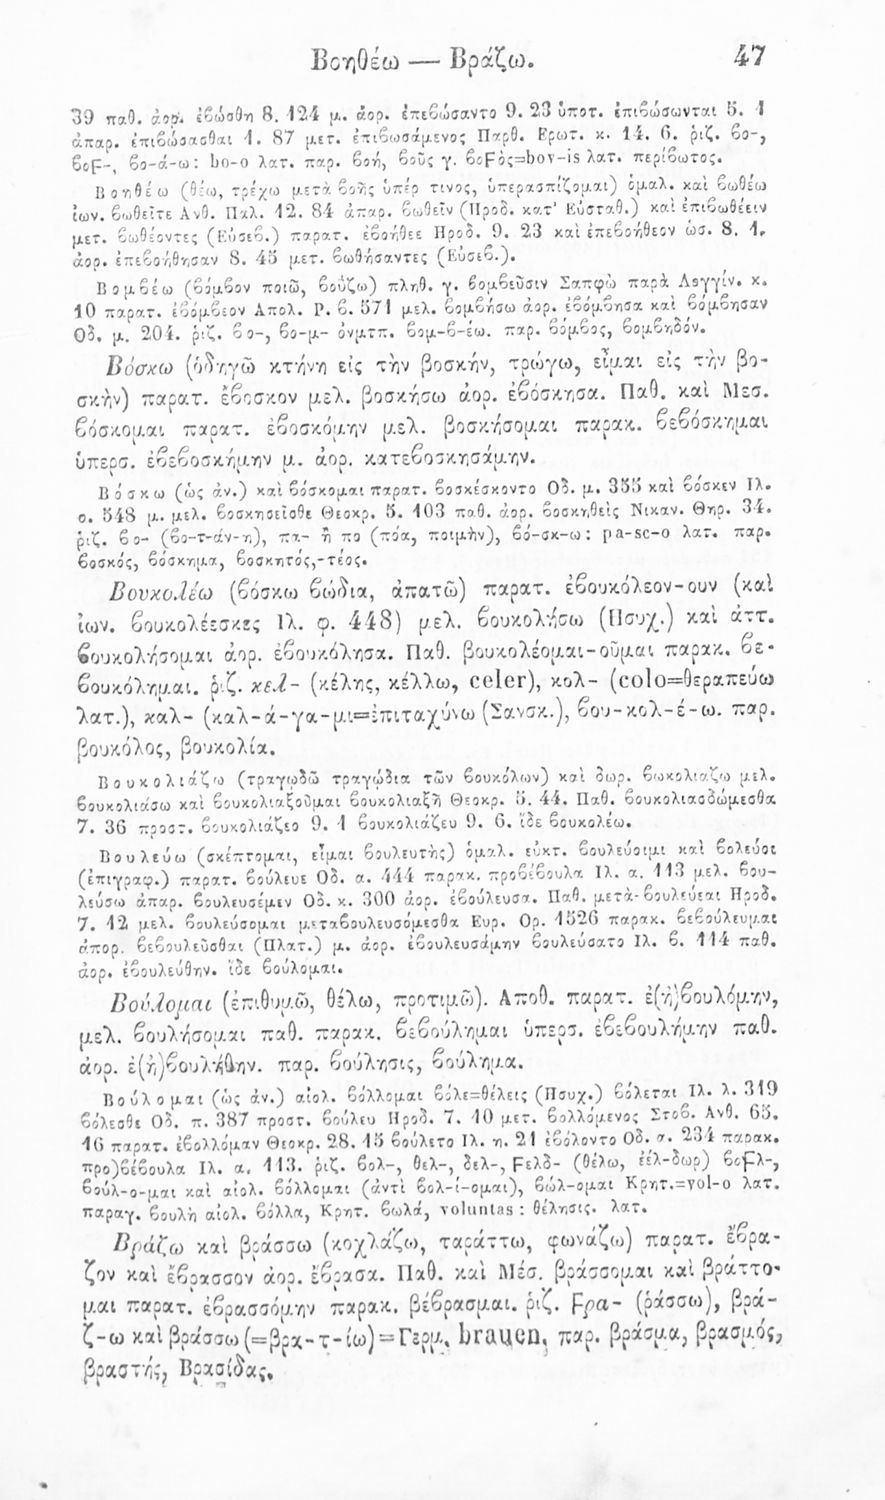 Βοηθέω — Βράζω. 47
39 παθ. ἀορ. ἐβώσθη 8. 124 μ. ἀορ. ἐπεβώσαντο 9. 23 ὑποτ. ἐπιβώσωνται 5. 1
ἀπαρ. ἐπιβώσασθαι 1. 87 μετ. ἐπιβωσάμενος Παρθ. Ερωτ. κ. 14. 6. ῥιζ. βο-,
βοϝ-, βο-ά-ω: bo-o λατ. παρ. βοή, βοῦς γ. βοϝὸς=bov-is λατ. περίβωτος.
Βοηθέω (θέω, τρέχω μετὰ βοῆς ὑπέρ τινος, ὑπερασπίζομαι) ὁμαλ. καὶ βωθέω
ἰων. βωθεῖτε Ανθ. Παλ. 12. 84 ἀπαρ. βωθεῖν (Ηροδ. κατ' Εὐσταθ.) καὶ ἐπιβωθέειν
μετ. βωθέοντες (Εὐσεβ.) παρατ. ἐβοήθεε Ηροδ. 9. 23 καὶ ἐπεβοήθεον ὡσ. 8. 1,
ἀορ. ἐπεβοήθησαν 8. 45 μετ. βωθήσαντες (Εὐσεβ.).
Βομβέω (βόμβον ποιῶ, βουΐζω) πληθ. γ. βομβεῦσιν Σαπφὼ παρὰ Λογγίν. κ.
10 παρατ. ἐβόμβεον Απολ. Ρ. β. 571 μελ. βομβήσω ἀορ. ἐβόμβησα καὶ βόμβησαν
Οδ. μ. 204. ῥιζ. βο-, βο-μ- ὀνμτπ. βομ-β-έω. παρ. βόμβος, βομβηδόν.
Βόσκω (ὁδηγῶ κτήνη εἰς τὴν βοσκήν, τρώγω, εἶμαι εἰς τὴν βο-
σκὴν) παρατ. ἔβοσκον μελ. βοσκήσω ἀορ. ἐβόσκησα. Παθ. καὶ Μεσ.
βόσκομαι παρατ. ἐβοσκόμην μελ. βοσκήσομαι παρακ. βεβόσκημαι
ὑπερσ. ἐβεβοσκήμην μ. ἀορ. κατεβοσκησάμην.
Βόσκω (ὡς ἀν.) καὶ βόσκομαι παρατ. βοσκέσκοντο Οδ. μ. 355 καὶ βόσκεν Ιλ.
ο. 548 μ. μελ. βοσκησεῖσθε Θεοκρ. 5. 103 παθ. ἀορ. βοσκηθεὶς Νικαν. Θηρ. 34.
ῥιζ. βο- (βο-τ-άν-η), πα- ἢ πο (πόα, ποιμὴν), βό-σκ-ω: pa-sc-o λατ. παρ.
βοσκός, βόσκημα, βοσκητός,-τέος.
Βουκολέω (βόσκω βώδια, ἀπατῶ) παρατ. ἐβουκόλεον-ουν (καὶ
ἰων. βουκολέεσκες Ιλ. φ. 448) μελ. βουκολήσω (Ησυχ.) καὶ ἀττ.
βουκολήσομαι ἀορ. ἐβουκόλησα. Παθ. βουκολέομαι-οῦμαι παρακ. βε-
βουκόλημαι. ῥιζ. κελ- (κέλης, κέλλω, celer), κολ- (colo=θεραπεύω
λατ.), καλ- (καλ-ά-γα-μι=ἐπιταχύνω (Σανσκ.), βου-κολ-έ-ω. παρ.
βουκόλος, βουκολία.
Βουκολιάζω (τραγωδῶ τραγώδια τῶν βουκόλων) καὶ δωρ. βωκολιαζω μελ.
βουκολιάσω καὶ βουκολιαξοῦμαι βουκολιαξῆ Θεοκρ. 5. 44. Παθ. βουκολιασδώμεσθα
7. 36 προστ. βουκολιάζεο 9. 1 βουκολιάζευ 9. 6. ἴδε βουκολέω.
Βουλεύω (σκέπτομαι, εἶμαι βουλευτὴς) ὁμαλ. εὐκτ. βουλεύοιμι καὶ βολεύοι
(ἐπιγραφ.) παρατ. βούλευε Οδ. α. 444 παρακ. προβέβουλα Ιλ. α. 113 μελ. βου-
λεύσω ἀπαρ. βουλευσέμεν Οδ. κ. 300 ἀορ. ἐβούλευσα. Παθ. μετὰ-βουλεύεαι Ηροδ.
7. 12 μελ. βουλεύσομαι μεταβουλευσόμεσθα Ευρ. Ορ. 1526 παρακ. βεβούλευμαι
ἀπαρ. βεβουλεῦσθαι (Πλατ.) μ. ἀορ. ἐβουλευσάμην βουλεύσατο Ιλ. β. 114 παθ.
ἀορ. ἐβουλεύθην. ἴδε βούλομαι.
Βούλομαι (ἐπιθυμῶ, θέλω, προτιμῶ). Αποθ. παρατ. ἐ(ἠ)βουλόμην,
μελ. βουλήσομαι παθ. παρακ. βεβούλημαι ὑπερσ. ἐβεβουλήμην παθ.
ἀορ. ἐ(ἠ)βουλήθην. παρ. βούλησις, βούλημα.
Βούλομαι (ὡς ἀν.) αἰολ. βόλλομαι βόλε=θέλεις (Ησυχ.) βόλεται Ιλ. λ. 319
βόλεσθε Οδ. π. 387 προστ. βούλευ Ηροδ. 7. 10 μετ. βολλόμενος Στοβ. Ανθ. 65.
16 παρατ. ἐβολλόμαν Θεοκρ. 28. 15 βούλετο Ιλ. η. 21 ἐβόλοντο Οδ. α. 234 παρακ.
προ)βέβουλα Ιλ. α. 113. ῥιζ. βολ-, θελ-, δελ-, ϝελδ- (θέλω, ἐέλ-δωρ) βοϝλ-,
βούλ-ο-μαι καὶ αἰολ. βόλλομαι (ἀντὶ βολ-ί-ομαι), βώλ-ομαι Κρητ.=vol-o λατ.
παραγ. βουλὴ αἰολ. βόλλα, Κρητ. βωλά, voluntas: θέλησις. λατ.
Βράζω καὶ βράσσω (κοχλάζω, ταράττω, φωνάζω) παρατ. ἔβρα-
ζον καὶ ἔβρασσον ἀορ. ἔβρασα. Παθ. καὶ Μέσ. βράσσομαι καὶ βράττο-
μαι παρατ. ἐβρασσόμην παρακ. βέβρασμαι. ῥιζ. ϝρα- (ῥάσσω), βρά-
ζ-ω καὶ βράσσω (=βρα-τ-ίω)=Γερμ. brauen, παρ. βράσμα, βρασμός,
βραστής, Βρασίδας.